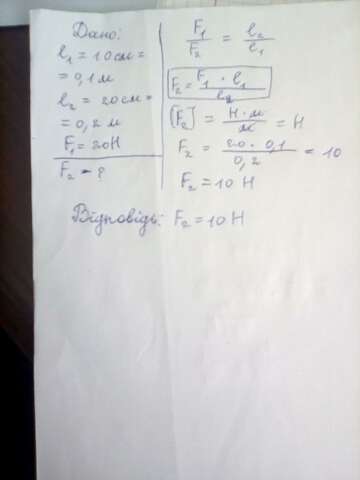 Дано:
l₁ = 10 см =
= 0,1 м
l₂ = 20 см =
= 0,2 м
F₁ = 20 Н
F₂ - ?
F₁/F₂ = l₂/l₁
F₂ = F₁ · l₁/l₂
[F₂] = Н · м/м = Н
F₂ = 20 · 0,1/0,2 = 10
F₂ = 10 Н
Відповідь: F₂ = 10 Н